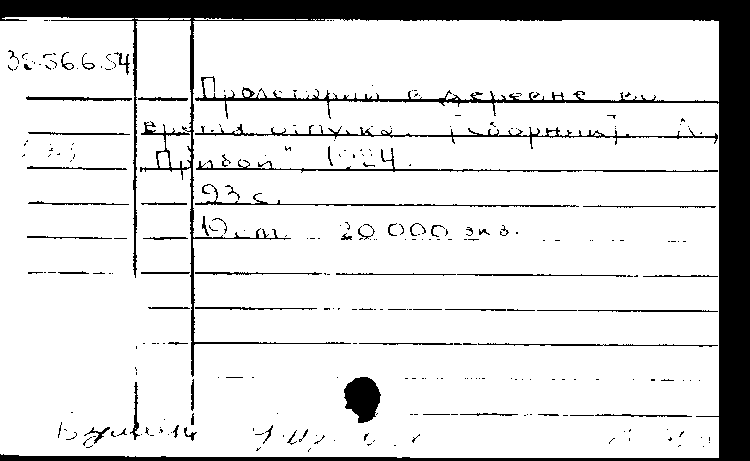 38.56.6.54
Пролетарий в деревне во
время отпуска. [Сборник]. Л.,
"Прибой", 1924.
93 с.
19 cm. 20 000 экз.